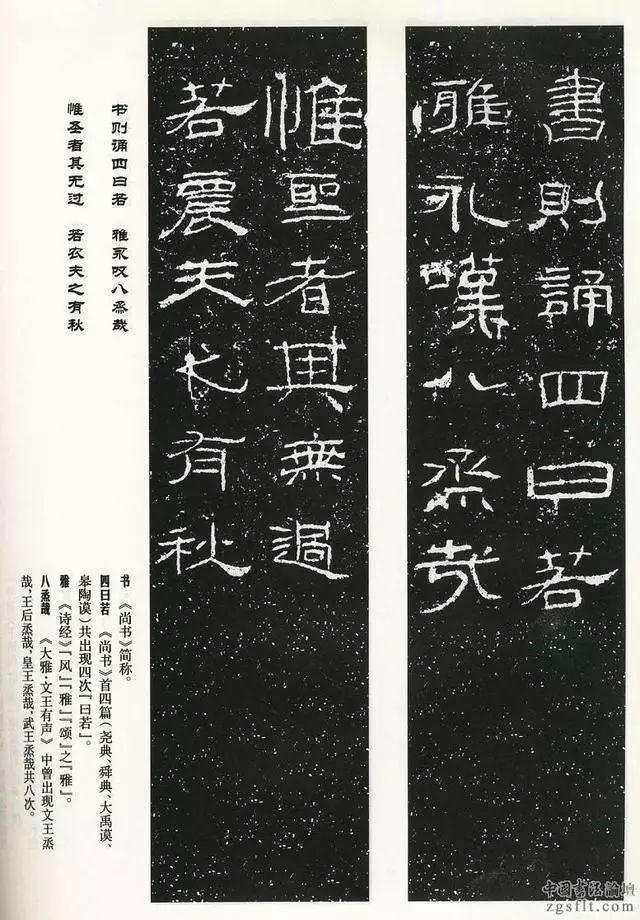 書則誦四曰若
雅永嘆八烝哉
惟聖者其無過
若農夫之有秋
书则诵四曰若 雅永叹八烝哉
惟圣者其无过 若农夫之有秋
书 《尚书》简称。
四曰若 《尚书》首四篇（尧典、舜典、大禹谟、
皋陶谟）共出现四次「曰若」。
雅 《诗经》「风」「雅」「颂」之「雅」。
八烝哉 《大雅·文王有声》中曾出现文王烝
哉，王后烝哉，皇王烝哉，武王烝哉共八次。
中国书法论坛
zgsflt.com